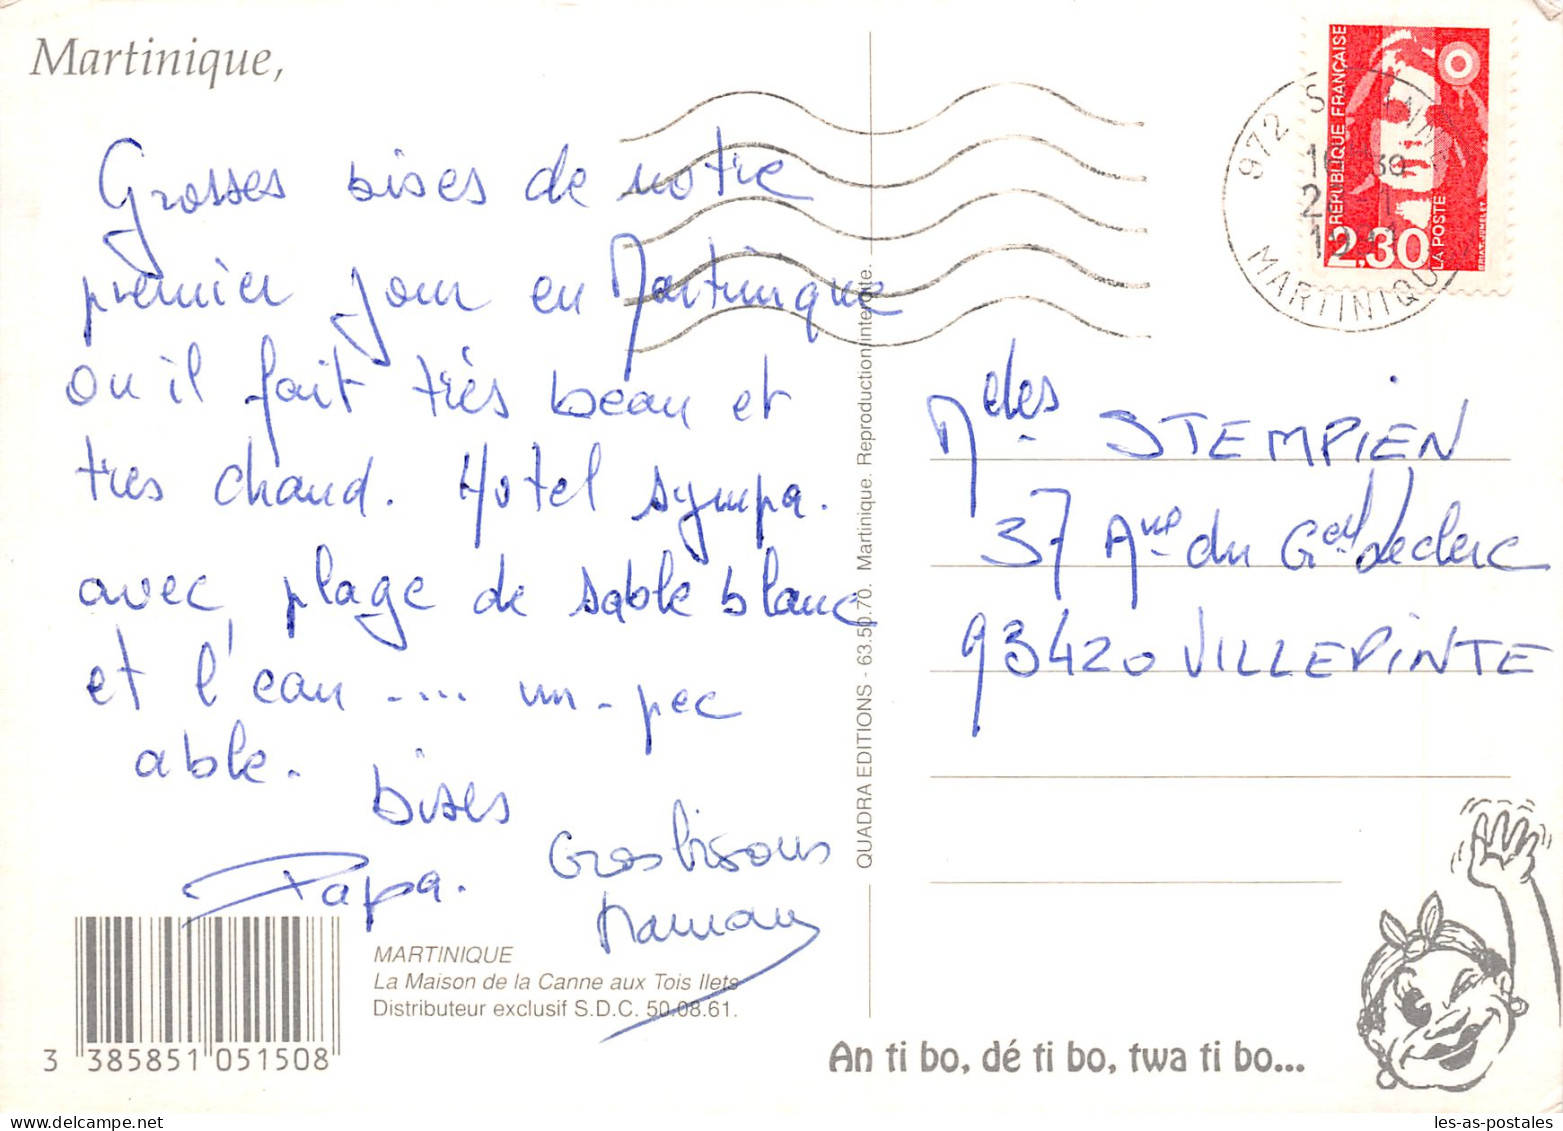 Martinique,
Grosses bises de notre
premier jour en Martinique
ou il fait très beau et
tres chaud. Hotel sympa.
avec plage de sable blanc
et l'eau ----... un-pec
able.
bises
Papa.
Gros bisous
Maman
MARTINIQUE
La Maison de la Canne aux Tois Ilets
Distributeur exclusif S.D.C. 50.08.61.
3 385851 051508
QUADRA EDITIONS - 63.50.70. Martinique. Reproduction interdite.
RÉPUBLIQUE FRANÇAISE
2.30
LA POSTE
972
MARTINIQUE
Melles STEMPIEN
37 Ave du Gal Leclerc
93420 VILLEPINTE
An ti bo, dé ti bo, twa ti bo...
les-as-postales